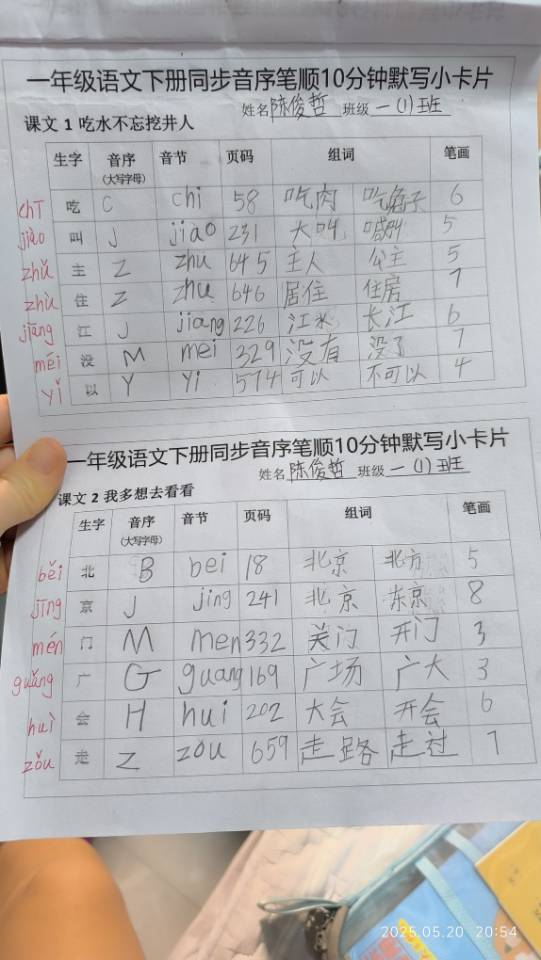 一年级语文下册同步音序笔顺10分钟默写小卡片
姓名 陈俊哲 班级 一(1)班
课文 1 吃水不忘挖井人
生字 音序(大写字母) 音节 页码 组词 笔画
chī 吃 C chi 58 吃肉 吃兔子 6
jiào 叫 J jiao 231 大叫 喊叫 5
zhǔ 主 Z zhu 645 主人 公主 5
zhù 住 Z zhu 646 居住 住房 7
jiāng 江 J jiang 226 江水 长江 6
méi 没 M mei 329 没有 没了 7
yǐ 以 Y yi 574 可以 不可以 4
一年级语文下册同步音序笔顺10分钟默写小卡片
姓名 陈俊哲 班级 一(1)班
课文 2 我多想去看看
生字 音序(大写字母) 音节 页码 组词 笔画
běi 北 B bei 18 北京 北方 5
jīng 京 J jing 241 北京 东京 8
mén 门 M men 332 关门 开门 3
guǎng 广 G guang 169 广场 广大 3
huì 会 H hui 202 大会 开会 6
zǒu 走 Z zou 659 走路 走过 7
2025.05.20 20:54